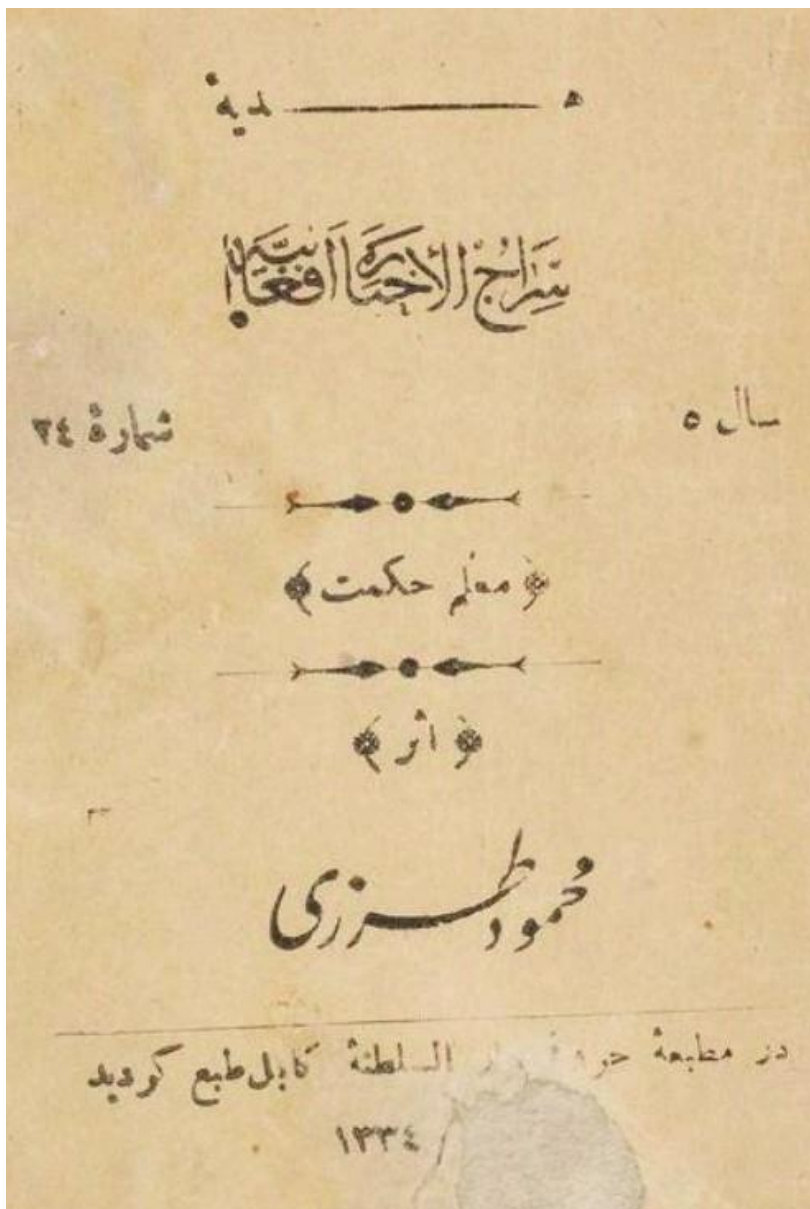 هدیهٔ
سِرَاجُ الأَخْبَارِ اَفْغَانِیَّه
سال ٥ شمارهٔ ٢٤
معلم حکمت
اثر
محمود طرزی
در مطبعهٔ السلطنهٔ کابل طبع کردید
١٣٣٤